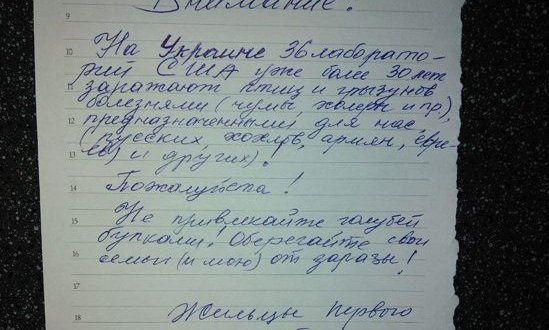 Внимание!
10
На Украине 36 лаборато-
рий США уже более 30 лет
11
заражают птиц и грызунов
болезнями (чумы, холеры и пр),
12
предназначенными для нас
(русских, хохлов, армян, евре-
13
ев) и других)!
14
Пожалуйста!
15
Не привлекайте голубей
булками! Оберегайте свои
16
семьи (и мою) от заразы!
17
18
Жильцы первого